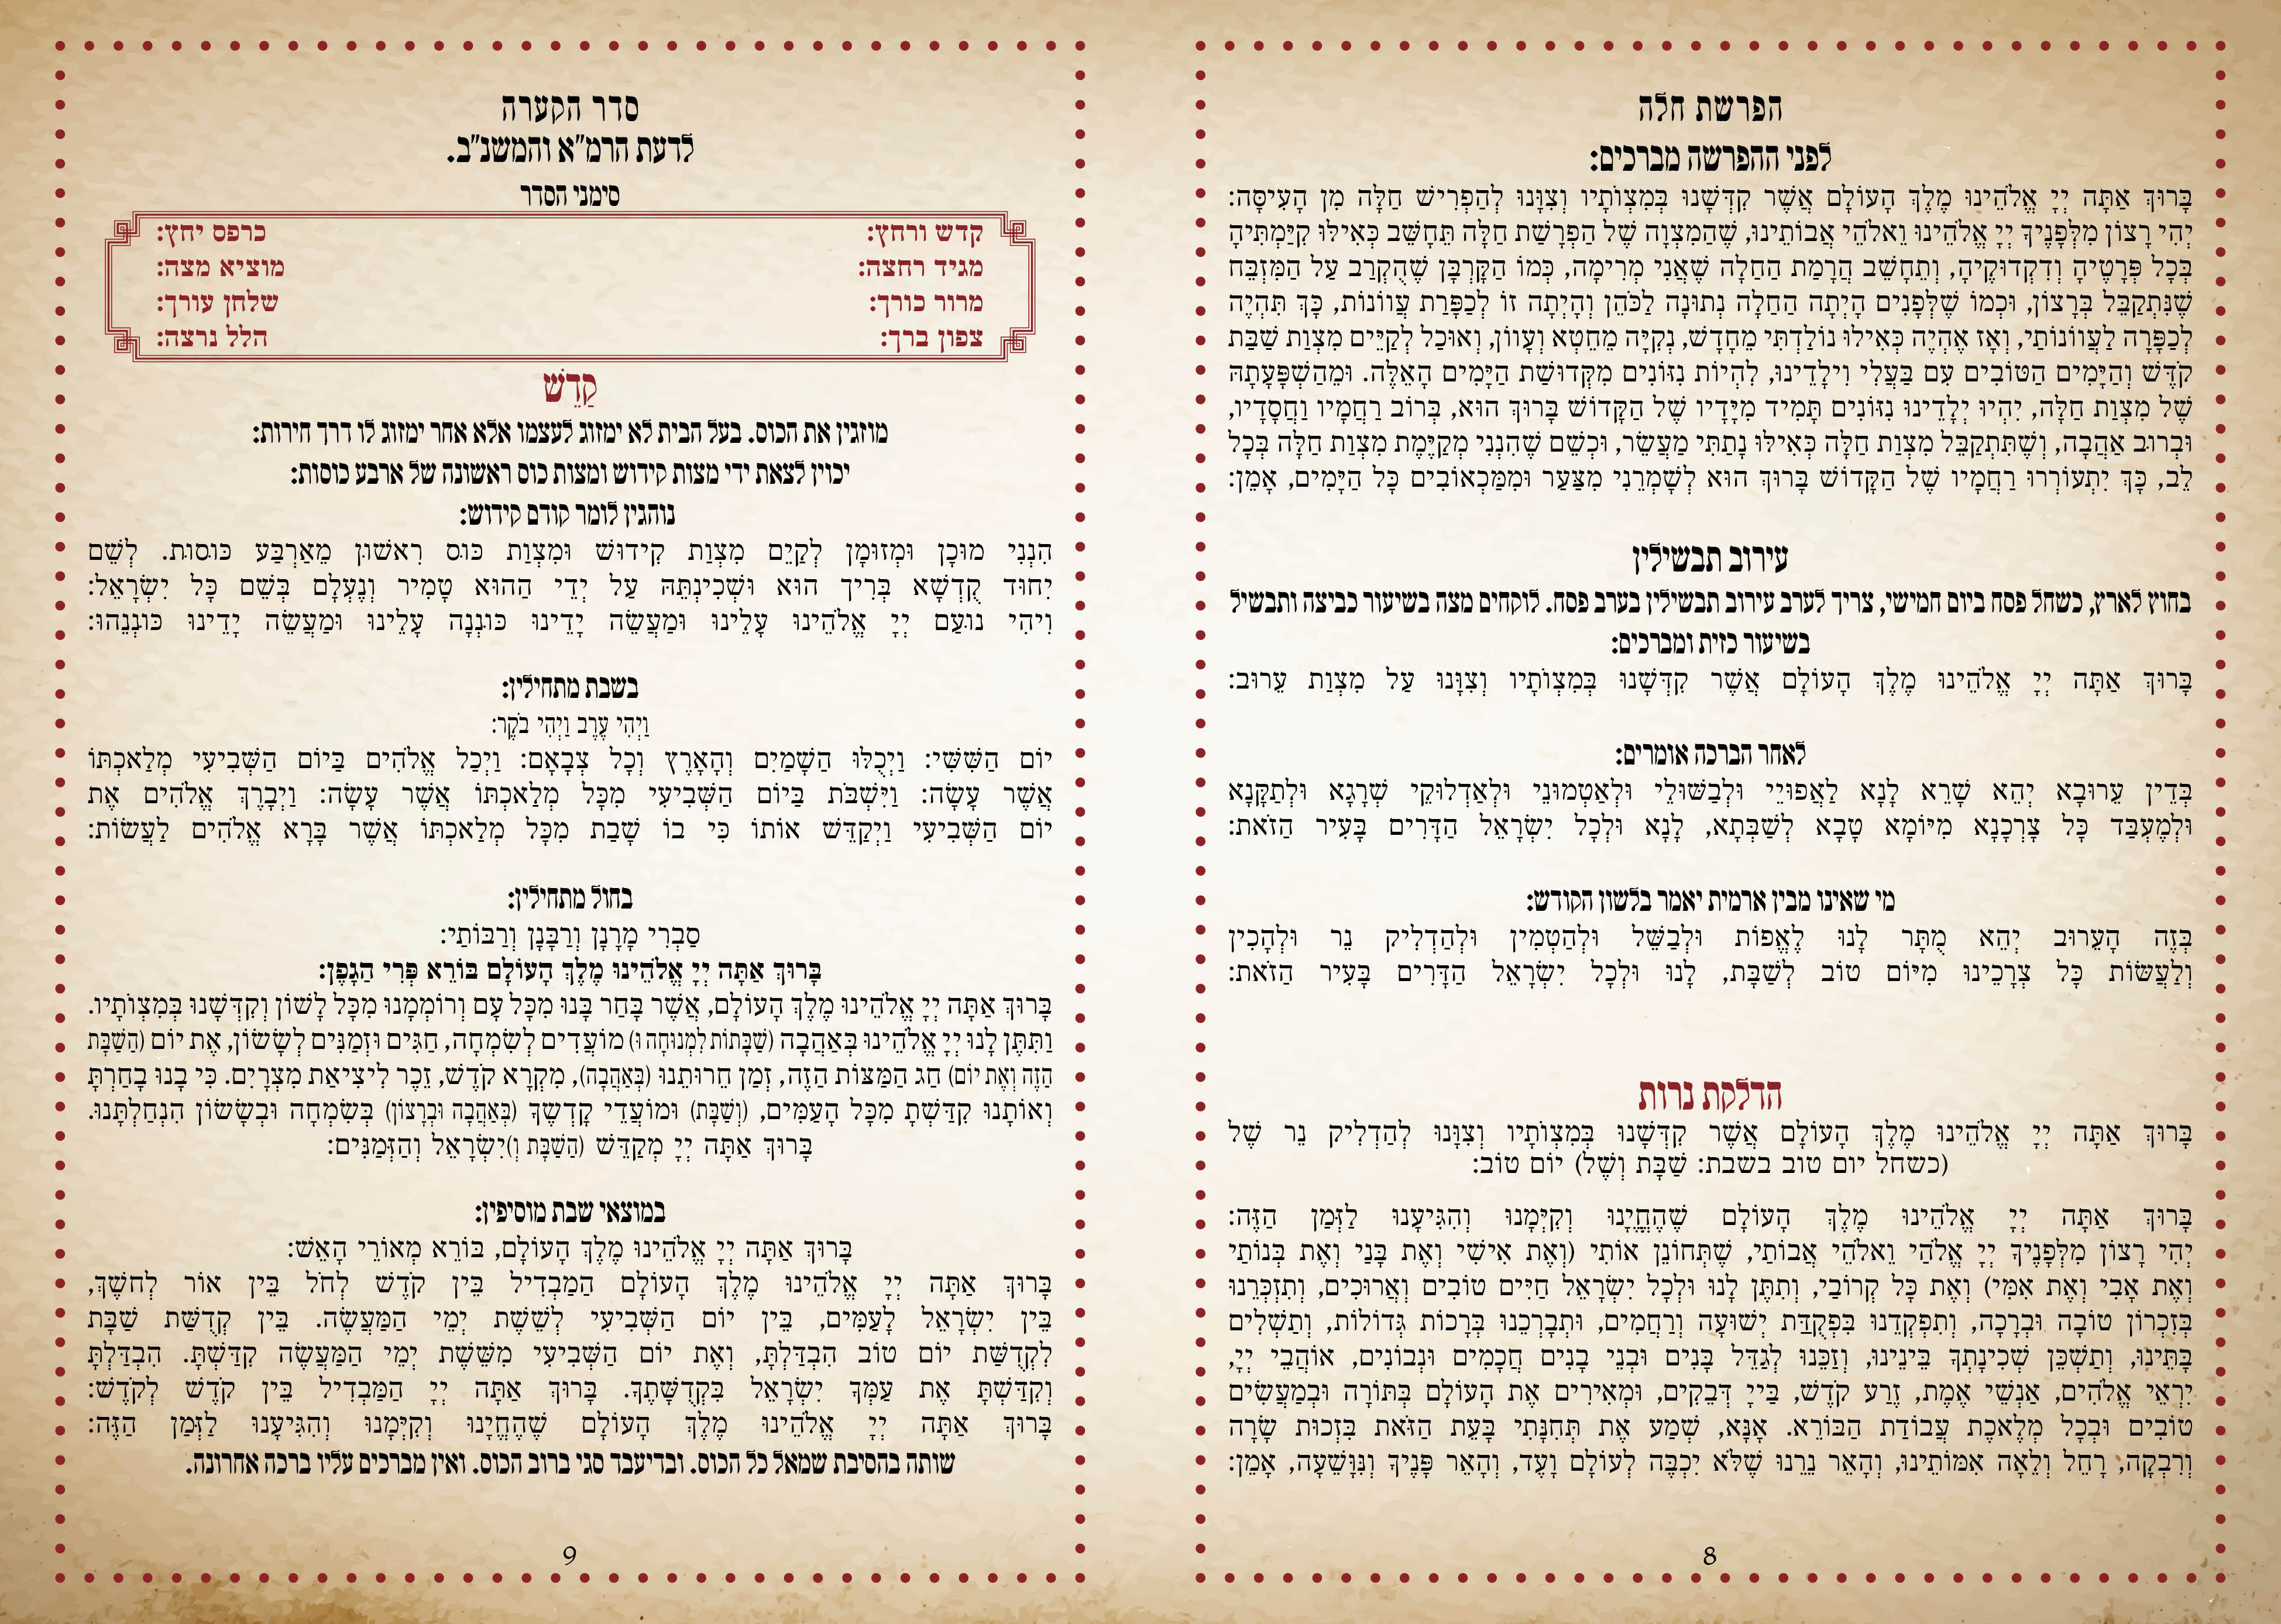 הפרשת חלה
לפני ההפרשה מברכים:
בָּרוּךְ אַתָּה יְיָ אֱלֹהֵינוּ מֶלֶךְ הָעוֹלָם אֲשֶׁר קִדְּשָׁנוּ בְּמִצְוֹתָיו וְצִוָּנוּ לְהַפְרִישׁ חַלָּה מִן הָעִיסָּה:
יְהִי רָצוֹן מִלְּפָנֶיךָ יְיָ אֱלֹהֵינוּ וֵאלֹהֵי אֲבוֹתֵינוּ, שֶׁהַמִּצְוָה שֶׁל הַפְרָשַׁת חַלָּה תֵּחָשֵׁב כְּאִילּוּ קִיַּמְתִּיהָ
בְּכָל פְּרָטֶיהָ וְדִקְדּוּקֶיהָ, וְתֵחָשֵׁב הֲרָמַת הַחַלָּה שֶׁאֲנִי מְרִימָה, כְּמוֹ הַקָּרְבָּן שֶׁהֻקְרַב עַל הַמִּזְבֵּחַ
שֶׁנִּתְקַבֵּל בְּרָצוֹן, וּכְמוֹ שֶׁלְּפָנִים הָיְתָה הַחַלָּה נְתוּנָה לַכֹּהֵן וְהָיְתָה זוֹ לְכַפָּרַת עֲווֹנוֹת, כָּךְ תִּהְיֶה
לְכַפָּרָה לַעֲווֹנוֹתַי, וְאָז אֶהְיֶה כְּאִילוּ נוֹלַדְתִּי מֵחָדָשׁ, נְקִיָּה מֵחֵטְא וְעָווֹן, וְאוּכַל לְקַיֵּים מִצְוַת שַׁבַּת
קֹדֶשׁ וְהַיָּמִים הַטּוֹבִים עִם בַּעֲלִי וִילָדֵינוּ, לִהְיוֹת נִזּוֹנִים מִקְּדוּשַׁת הַיָּמִים הָאֵלֶּה. וּמֵהַשְׁפָּעָתָהּ
שֶׁל מִצְוַת חַלָּה, יִהְיוּ יְלָדֵינוּ נִזּוֹנִים תָּמִיד מִיָּדָיו שֶׁל הַקָּדוֹשׁ בָּרוּךְ הוּא, בְּרוֹב רַחֲמָיו וַחֲסָדָיו,
וּבְרוּב אַהֲבָה, וְשֶׁתִּתְקַבֵּל מִצְוַת חַלָּה כְּאִילּוּ נָתַתִּי מַעֲשֵׂר, וּכְשֵׁם שֶׁהִנְנִי מְקַיֶּמֶת מִצְוַת חַלָּה בְּכָל
לֵב, כָּךְ יִתְעוֹרְרוּ רַחֲמָיו שֶׁל הַקָּדוֹשׁ בָּרוּךְ הוּא לְשָׁמְרֵנִי מִצַּעַר וּמִמַּכְאוֹבִים כָּל הַיָּמִים, אָמֵן:
עירוב תבשילין
בחוץ לארץ, כשחל פסח ביום חמישי, צריך לערב עירוב תבשילין בערב פסח. לוקחים מצה בשיעור כביצה ותבשיל
בשיעור כזית ומברכים:
בָּרוּךְ אַתָּה יְיָ אֱלֹהֵינוּ מֶלֶךְ הָעוֹלָם אֲשֶׁר קִדְּשָׁנוּ בְּמִצְוֹתָיו וְצִוָּנוּ עַל מִצְוַת עֵרוּב:
לאחר הברכה אומרים:
בְּדֵין עֵרוּבָא יְהֵא שָׁרֵא לָנָא לַאֲפוּיֵי וּלְבַשּׁוּלֵי וּלְאַטְמוּנֵי וּלְאַדְלוּקֵי שְׁרָגָא וּלְתַקָּנָא
וּלְמֶעְבַּד כָּל צָרְכָנָא מִיּוֹמָא טָבָא לְשַׁבְּתָא, לָנָא וּלְכָל יִשְׂרָאֵל הַדָּרִים בָּעִיר הַזֹּאת:
מי שאינו מבין ארמית יאמר בלשון הקודש:
בְּזֶה הָעֵרוּב יְהֵא מֻתָּר לָנוּ לֶאֱפוֹת וּלְבַשֵּׁל וּלְהַטְמִין וּלְהַדְלִיק נֵר וּלְהָכִין
וְלַעֲשׂוֹת כָּל צְרָכֵינוּ מִיּוֹם טוֹב לְשַׁבָּת, לָנוּ וּלְכָל יִשְׂרָאֵל הַדָּרִים בָּעִיר הַזֹּאת:
הדלקת נרות
בָּרוּךְ אַתָּה יְיָ אֱלֹהֵינוּ מֶלֶךְ הָעוֹלָם אֲשֶׁר קִדְּשָׁנוּ בְּמִצְוֹתָיו וְצִוָּנוּ לְהַדְלִיק נֵר שֶׁל
(כשחל יום טוב בשבת: שַׁבָּת וְשֶׁל) יוֹם טוֹב:
בָּרוּךְ אַתָּה יְיָ אֱלֹהֵינוּ מֶלֶךְ הָעוֹלָם שֶׁהֶחֱיָנוּ וְקִיְּמָנוּ וְהִגִּיעָנוּ לַזְּמַן הַזֶּה:
יְהִי רָצוֹן מִלְּפָנֶיךָ יְיָ אֱלֹהַי וֵאלֹהֵי אֲבוֹתַי, שֶׁתְּחוֹנֵן אוֹתִי (וְאֶת אִישִׁי וְאֶת בָּנַי וְאֶת בְּנוֹתַי
וְאֶת אָבִי וְאֶת אִמִּי) וְאֶת כָּל קְרוֹבַי, וְתִתֵּן לָנוּ וּלְכָל יִשְׂרָאֵל חַיִּים טוֹבִים וְאֲרוּכִים, וְתִזְכְּרֵנוּ
בְּזִכְרוֹן טוֹבָה וּבְרָכָה, וְתִפְקְדֵנוּ בִּפְקֻדַּת יְשׁוּעָה וְרַחֲמִים, וּתְבָרְכֵנוּ בְּרָכוֹת גְּדוֹלוֹת, וְתַשְׁלִים
בָּתֵּינוּ, וְתַשְׁכֵּן שְׁכִינָתְךָ בֵּינֵינוּ, וְזַכֵּנוּ לְגַדֵּל בָּנִים וּבְנֵי בָנִים חֲכָמִים וּנְבוֹנִים, אוֹהֲבֵי יְיָ,
יִרְאֵי אֱלֹהִים, אַנְשֵׁי אֱמֶת, זֶרַע קֹדֶשׁ, בַּייָ דְּבֵקִים, וּמְאִירִים אֶת הָעוֹלָם בְּתּוֹרָה וּבְמַעֲשִׂים
טוֹבִים וּבְכָל מְלֶאכֶת עֲבוֹדַת הַבּוֹרֵא. אָנָּא, שְׁמַע אֶת תְּחִנָּתִי בָּעֵת הַזֹּאת בִּזְכוּת שָׂרָה
וְרִבְקָה, רָחֵל וְלֵאָה אִמּוֹתֵינוּ, וְהָאֵר נֵרֵנוּ שֶׁלֹּא יִכְבֶּה לְעוֹלָם וָעֶד, וְהָאֵר פָּנֶיךָ וְנִוָּשֵׁעָה, אָמֵן:
8
סדר הקערה
לדעת הרמ"א והמשנ"ב.
סימני הסדר
קדש ורחץ: כרפס יחץ:
מגיד רחצה: מוציא מצה:
מרור כורך: שלחן עורך:
צפון ברך: הלל נרצה:
קַדֵּשׁ
מוזגין את הכוס. בעל הבית לא ימזוג לעצמו אלא אחר ימזוג לו דרך חירות:
יכוין לצאת ידי מצות קידוש ומצות כוס ראשונה של ארבע כוסות:
נוהגין לומר קודם קידוש:
הִנְנִי מוּכָן וּמְזוּמָן לְקַיֵּם מִצְוַת קִידוּשׁ וּמִצְוַת כּוֹס רִאשׁוֹן מֵאַרְבַּע כּוֹסוֹת. לְשֵׁם
יִחוּד קֻדְשָׁא בְּרִיךְ הוּא וּשְׁכִינְתֵּהּ עַל יְדֵי הַהוּא טָמִיר וְנֶעְלָם בְּשֵׁם כָּל יִשְׂרָאֵל:
וִיהִי נוֹעַם יְיָ אֱלֹהֵינוּ עָלֵינוּ וּמַעֲשֵׂה יָדֵינוּ כּוֹנְנָה עָלֵינוּ וּמַעֲשֵׂה יָדֵינוּ כּוֹנְנֵהוּ:
בשבת מתחילין:
וַיְהִי עֶרֶב וַיְהִי בֹקֶר:
יוֹם הַשִּׁשִּׁי: וַיְכֻלּוּ הַשָּׁמַיִם וְהָאָרֶץ וְכָל צְבָאָם: וַיְכַל אֱלֹהִים בַּיּוֹם הַשְּׁבִיעִי מְלַאכְתּוֹ
אֲשֶׁר עָשָׂה: וַיִּשְׁבֹּת בַּיּוֹם הַשְּׁבִיעִי מִכָּל מְלַאכְתּוֹ אֲשֶׁר עָשָׂה: וַיְבָרֶךְ אֱלֹהִים אֶת
יוֹם הַשְּׁבִיעִי וַיְקַדֵּשׁ אוֹתוֹ כִּי בוֹ שָׁבַת מִכָּל מְלַאכְתּוֹ אֲשֶׁר בָּרָא אֱלֹהִים לַעֲשׂוֹת:
בחול מתחילין:
סַבְרִי מָרָנָן וְרַבָּנָן וְרַבּוֹתַי:
בָּרוּךְ אַתָּה יְיָ אֱלֹהֵינוּ מֶלֶךְ הָעוֹלָם בּוֹרֵא פְּרִי הַגָּפֶן:
בָּרוּךְ אַתָּה יְיָ אֱלֹהֵינוּ מֶלֶךְ הָעוֹלָם, אֲשֶׁר בָּחַר בָּנוּ מִכָּל עָם וְרוֹמְמָנוּ מִכָּל לָשׁוֹן וְקִדְּשָׁנוּ בְּמִצְוֹתָיו.
וַתִּתֶּן לָנוּ יְיָ אֱלֹהֵינוּ בְּאַהֲבָה (שַׁבָּתוֹת לִמְנוּחָה וּ) מוֹעֲדִים לְשִׂמְחָה, חַגִּים וּזְמַנִּים לְשָׂשׂוֹן, אֶת יוֹם (הַשַּׁבָּת
הַזֶּה וְאֶת יוֹם) חַג הַמַּצּוֹת הַזֶּה, זְמַן חֵרוּתֵנוּ (בְּאַהֲבָה), מִקְרָא קֹדֶשׁ, זֵכֶר לִיצִיאַת מִצְרָיִם. כִּי בָנוּ בָחַרְתָּ
וְאוֹתָנוּ קִדַּשְׁתָּ מִכָּל הָעַמִּים, (וְשַׁבָּת) וּמוֹעֲדֵי קָדְשֶׁךָ (בְּאַהֲבָה וּבְרָצוֹן) בְּשִׂמְחָה וּבְשָׂשׂוֹן הִנְחַלְתָּנוּ.
בָּרוּךְ אַתָּה יְיָ מְקַדֵּשׁ (הַשַּׁבָּת וְ)יִשְׂרָאֵל וְהַזְּמַנִּים:
במוצאי שבת מוסיפין:
בָּרוּךְ אַתָּה יְיָ אֱלֹהֵינוּ מֶלֶךְ הָעוֹלָם, בּוֹרֵא מְאוֹרֵי הָאֵשׁ:
בָּרוּךְ אַתָּה יְיָ אֱלֹהֵינוּ מֶלֶךְ הָעוֹלָם הַמַּבְדִּיל בֵּין קֹדֶשׁ לְחֹל בֵּין אוֹר לְחשֶׁךְ,
בֵּין יִשְׂרָאֵל לָעַמִּים, בֵּין יוֹם הַשְּׁבִיעִי לְשֵׁשֶׁת יְמֵי הַמַּעֲשֶׂה. בֵּין קְדֻשַּׁת שַׁבָּת
לִקְדֻשַּׁת יוֹם טוֹב הִבְדַּלְתָּ, וְאֶת יוֹם הַשְּׁבִיעִי מִשֵּׁשֶׁת יְמֵי הַמַּעֲשֶׂה קִדַּשְׁתָּ. הִבְדַּלְתָּ
וְקִדַּשְׁתָּ אֶת עַמְּךָ יִשְׂרָאֵל בִּקְדֻשָּׁתֶךָ. בָּרוּךְ אַתָּה יְיָ הַמַּבְדִּיל בֵּין קֹדֶשׁ לְקֹדֶשׁ:
בָּרוּךְ אַתָּה יְיָ אֱלֹהֵינוּ מֶלֶךְ הָעוֹלָם שֶׁהֶחֱיָנוּ וְקִיְּמָנוּ וְהִגִּיעָנוּ לַזְּמַן הַזֶּה:
שותה בהסיבת שמאל כל הכוס. ובדיעבד סגי ברוב הכוס. ואין מברכים עליו ברכה אחרונה.
9